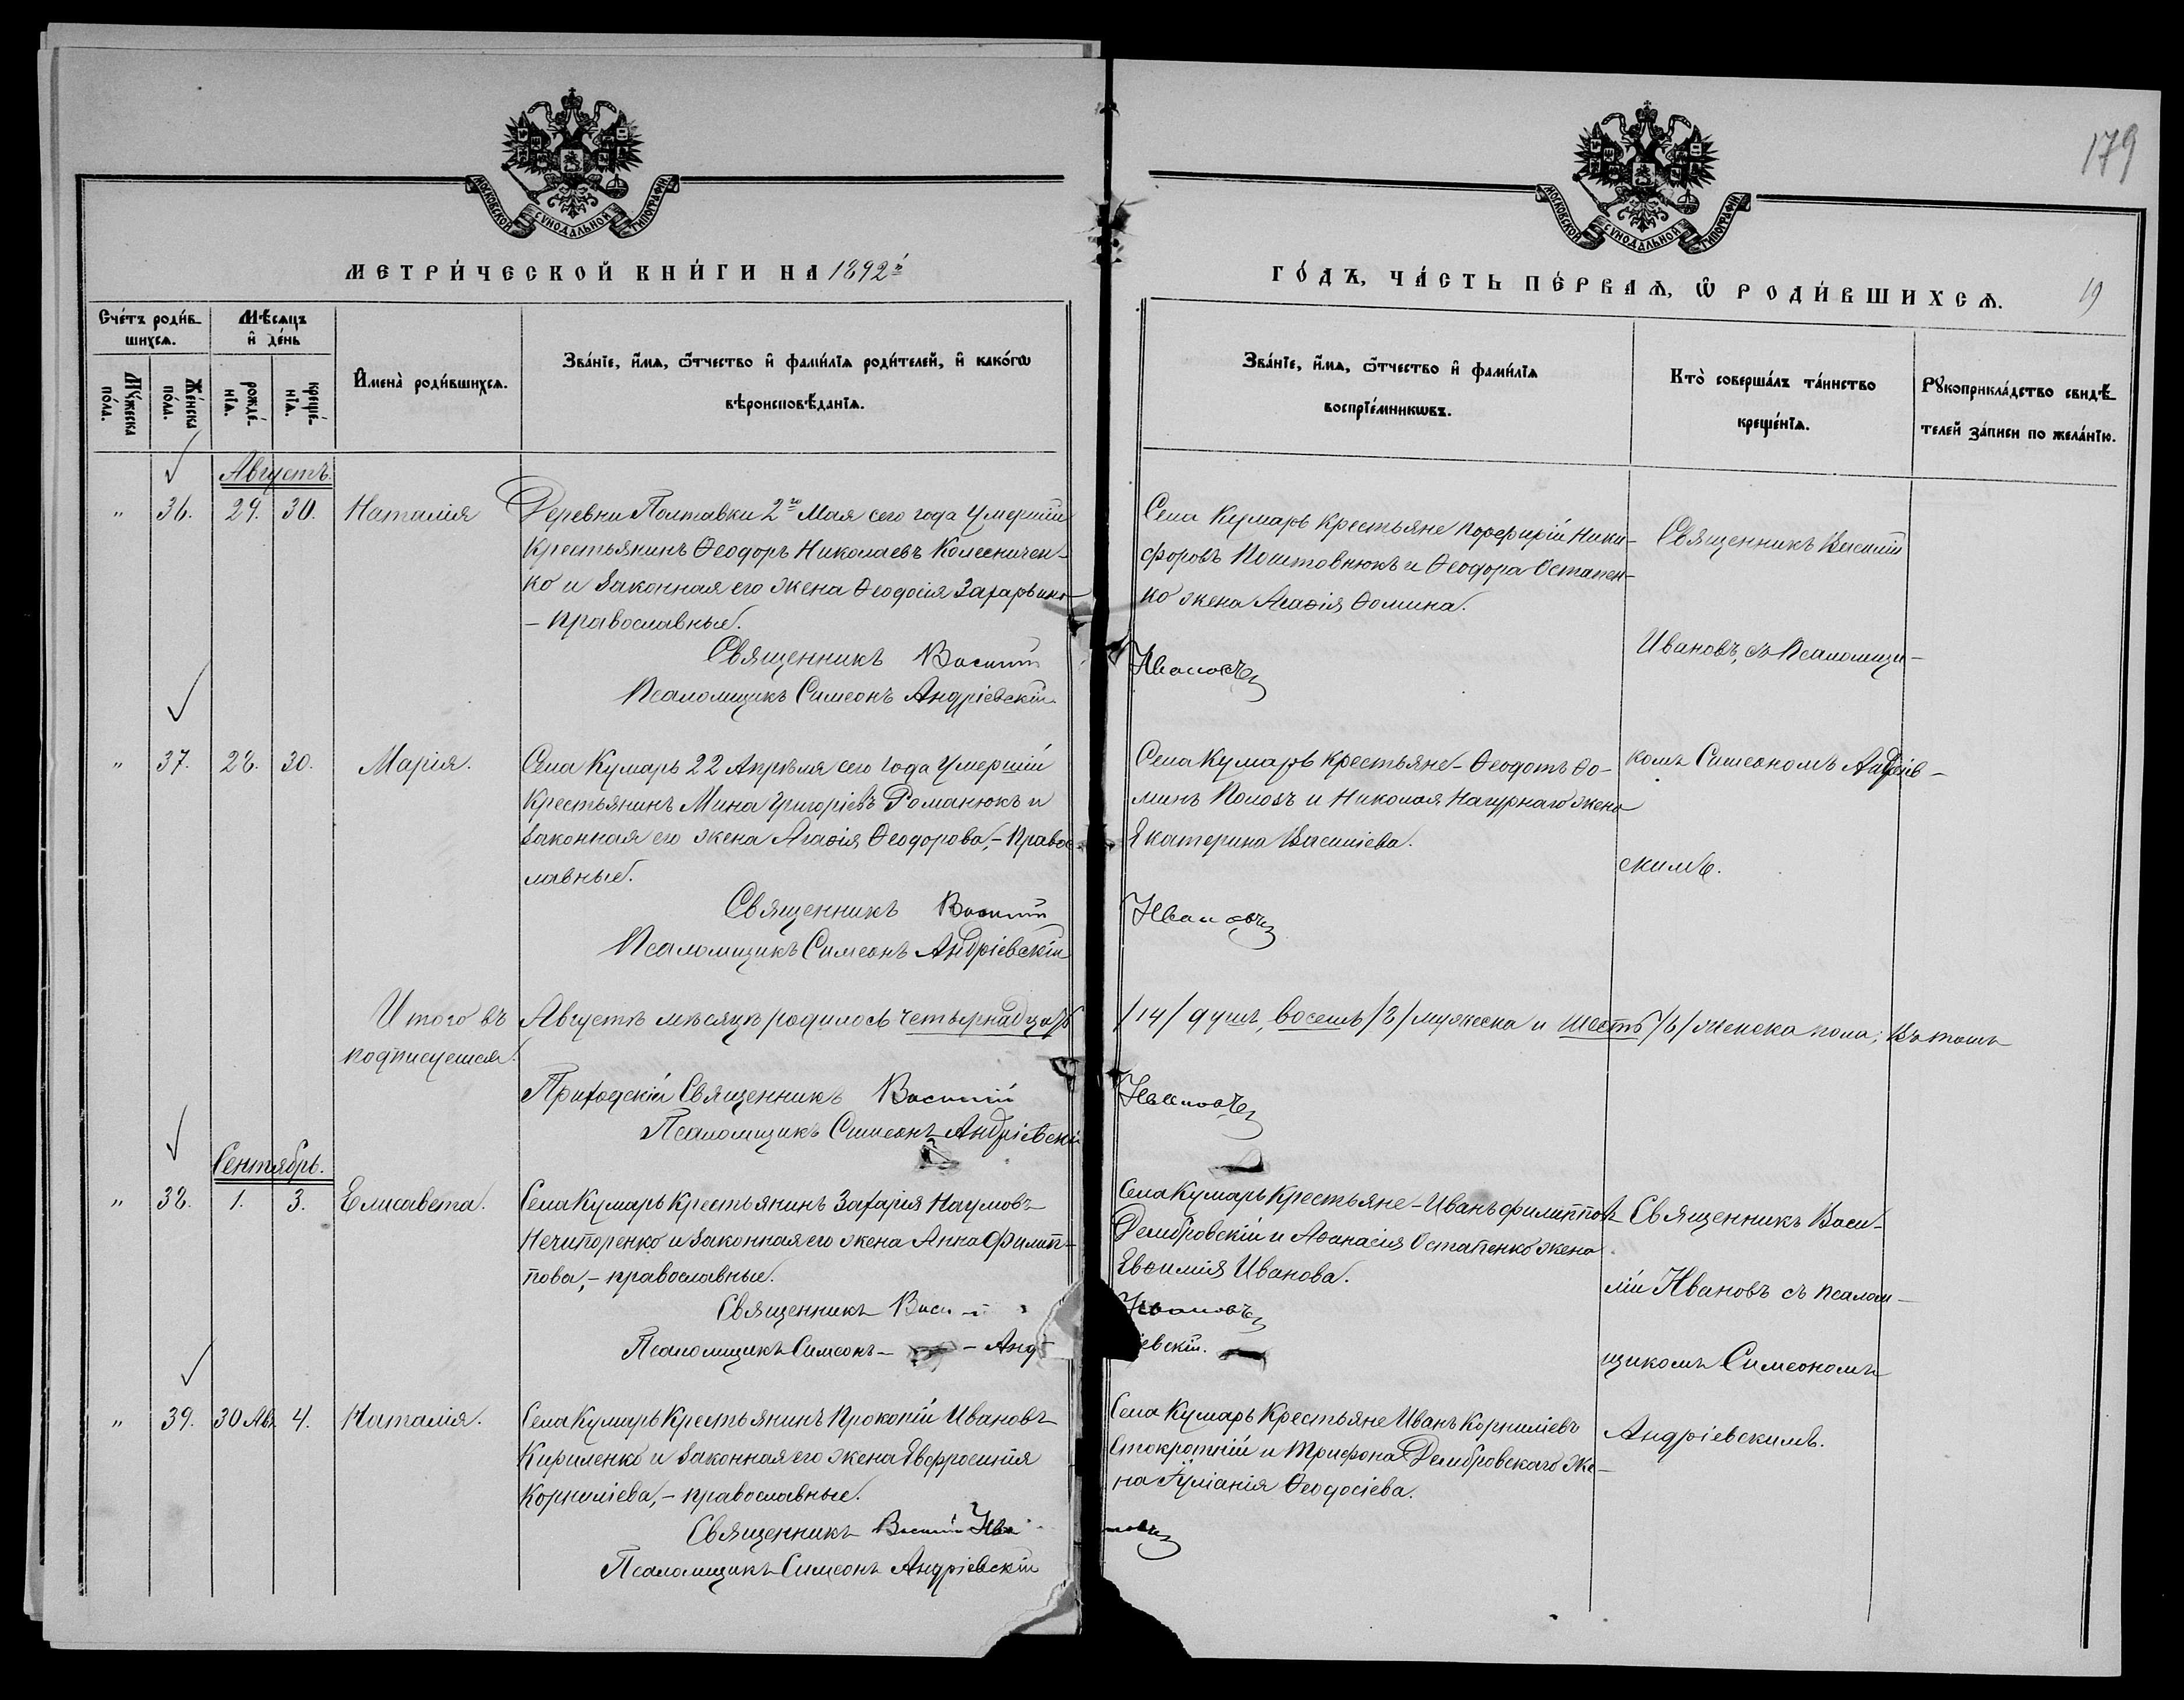 179
МОСКОВСКОЙ СУНОДАЛЬНОЙ ТИПОГРАФІИ
МОСКОВСКОЙ СУНОДАЛЬНОЙ ТИПОГРАФІИ
МЕТРИ́ЧЕСКОЙ КНИ́ГИ НА 1892й
ГО́ДЪ, ЧА́СТЬ ПЕ́РВАѦ, Ѡ҆ РОДИ́ВШИХСѦ. 19
Сче́тъ роди́в-
шихсѧ.
Мѣ́сѧцъ
и҆ де́нь
Мꙋ́жеска
по́ла.
Же́нска
по́ла.
рожде́-
нїѧ.
креще́-
нїѧ.
И҆мена̀ роди́вшихсѧ.
Зва́нїе, и҆́мѧ, ѻ҆́тчество и҆ фами́лїѧ роди́телей, и҆ како́гѡ
вѣроисповѣ́данїѧ.
Зва́нїе, и҆́мѧ, ѻ҆́тчество и҆ фами́лїѧ
воспрїе́мникѡвъ.
Кто̀ соверша́лъ та́инство
креще́нїѧ.
Рꙋкоприкла́дство свидѣ́-
телей за́писи по жела́нїю.
Августъ.
" 36. 29. 30. Наталія
Деревни Полтавки 2го Мая сего года умершій
крестьянинъ Ѳеодоръ Николаевъ Колесничен-
ко и законная его жена Ѳеодосія Захарьина
- православные.
Священникъ Василій
Псаломщикъ Симеонъ Андріевскій
Села Кумаръ крестьяне Порфирій Ники-
форовъ Поштовнюкъ и Ѳеодора Остапен-
ко жена Агаѳія Ѳомина.
Ивановъ
Священникъ Василій
Ивановъ, съ Псаломщи-
" 37. 28. 30. Марія.
Села Кумаръ 22 Апрѣля сего года умершій
крестьянинъ Мина Григоріевъ Романюкъ и
законная его жена Агаѳія Ѳеодорова, - правос-
лавные.
Священникъ Василій
Псаломщикъ Симеонъ Андріевскій
Села Кумаръ крестьяне - Ѳеодотъ Ѳо-
минъ Поповъ и Николая Нагурнаго жена
Екатерина Василіева.
Ивановъ
комъ Симеономъ Андріев-
скимъ.
Итого въ Августѣ мѣсяцѣ родилось четырнадцать /14/ душъ, восемь /8/ мужеска и шесть /6/ женска пола; Въ томъ
подписуемся.
Приходскій Священникъ Василій Ивановъ
Псаломщикъ Симеонъ Андріевскій
Сентябрь.
" 38. 1. 3. Елисавета.
Села Кумаръ крестьянинъ Захарія Наумовъ
Нечипоренко и законная его жена Анна Филип-
пова, - православные.
Священникъ Васи
Псаломщикъ Симеонъ - - Анд
Села Кумаръ крестьяне - Иванъ Филиппов
Дембровскій и Аѳанасія Остапенко жена
Евѳимія Иванова.
Ивановъ
іевскій.
Священникъ Васи-
лій Ивановъ съ псалом-
щикомъ Симеономъ
Андріевскимъ.
" 39. 30 Авг. 4. Наталія.
Села Кумаръ крестьянинъ Прокопій Ивановъ
Кириленко и законная его жена Евфросинія
Корниліева, - православные.
Священникъ Василій Ивановъ
Псаломщикъ Симеонъ Андріевскій
Села Кумаръ крестьяне Иванъ Корниліевъ
Стокротній и Трифона Дембровскаго же-
на Іуліанія Ѳеодосіева.